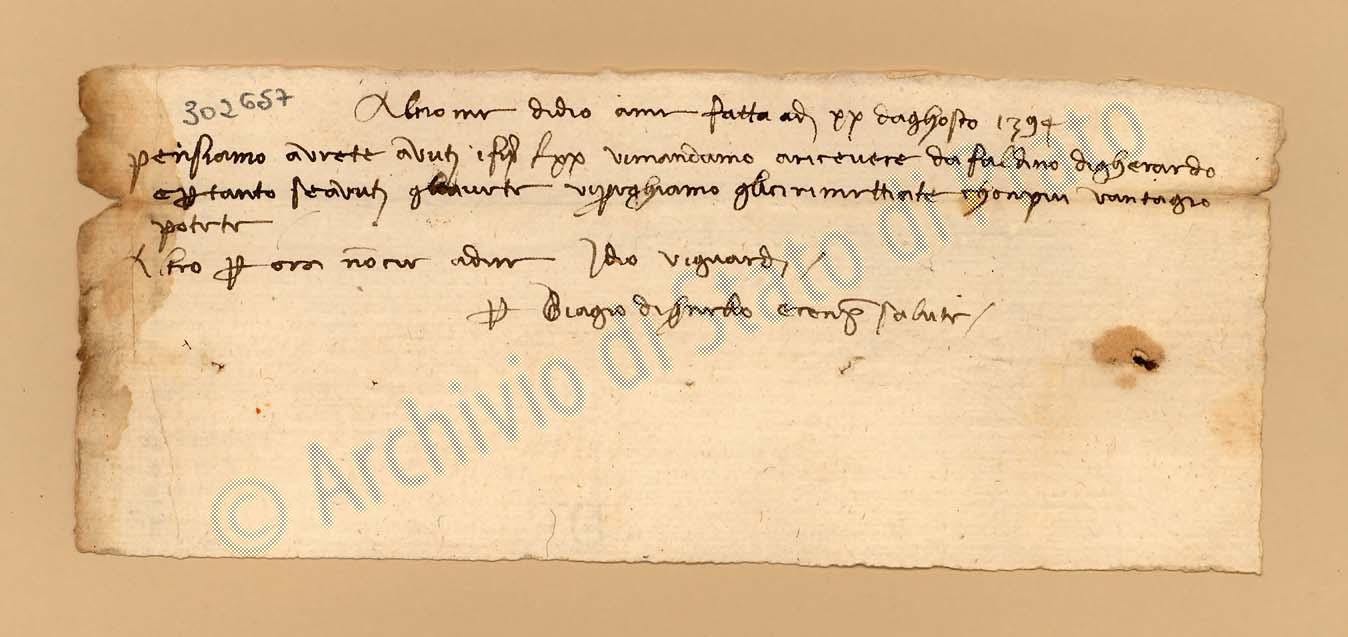 302657
Al nome di dio ame fatta adj xx daghosto 1394
pensiamo avrete avutj i fj̃ lxx vi mandamo aricevere da faldino digherardo
e p tanto se avutj gli avete vi preghiamo gli ci rimettiate chon piu vantagio
potete
Altro p ora nō cie a dire Idio vi guardj /
p Biagio di e conp̃ salute /
© Archivio di Stato di Prato